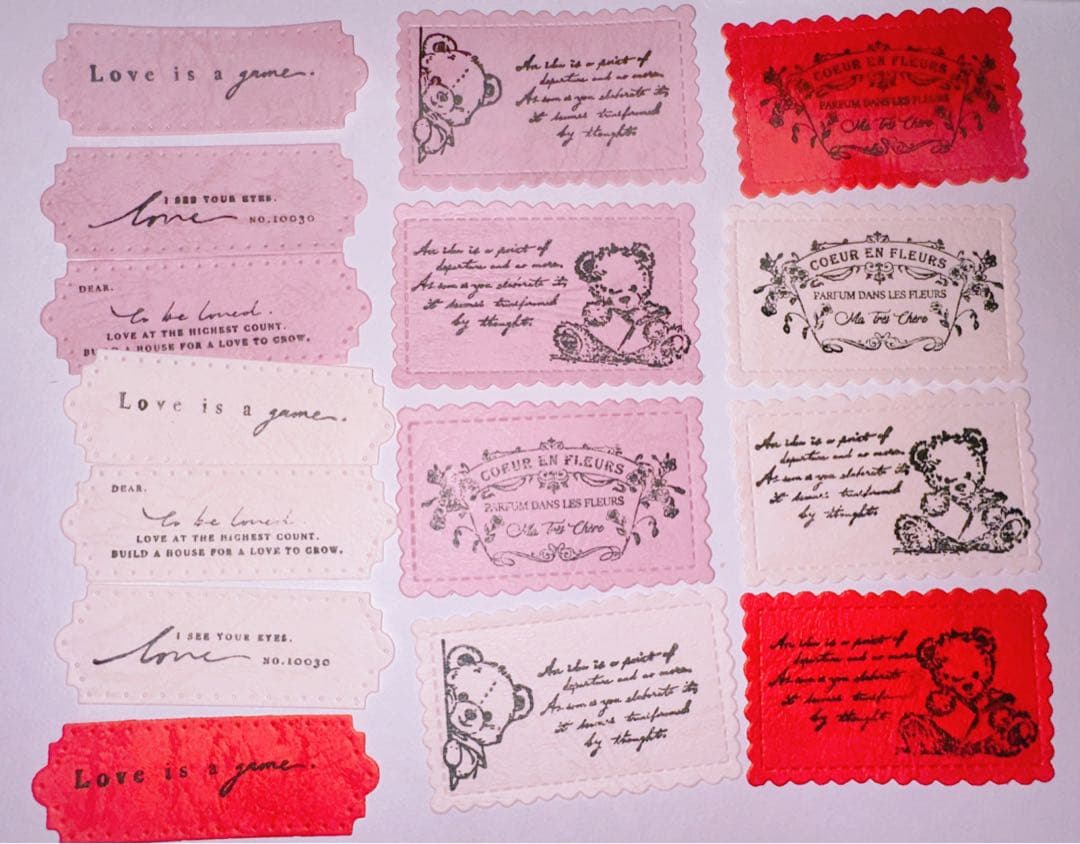 Love is a game.
I SEE YOUR EYES.
love NO.10030
DEAR.
To be loved.
LOVE AT THE HIGHEST COUNT.
BUILD A HOUSE FOR A LOVE TO GROW.
Love is a game.
DEAR.
To be loved.
LOVE AT THE HIGHEST COUNT.
BUILD A HOUSE FOR A LOVE TO GROW.
I SEE YOUR EYES.
love NO.10030
Love is a game.
An idea is a point of
departure and no more.
As soon as you elaborate it,
it becomes transformed
by thought.
An idea is a point of
departure and no more.
As soon as you elaborate it,
it becomes transformed
by thought.
COEUR EN FLEURS
PARFUM DANS LES FLEURS
Ma Très Chère
An idea is a point of
departure and no more.
As soon as you elaborate it,
it becomes transformed
by thought.
COEUR EN FLEURS
PARFUM DANS LES FLEURS
Ma Très Chère
COEUR EN FLEURS
PARFUM DANS LES FLEURS
Ma Très Chère
An idea is a point of
departure and no more.
As soon as you elaborate it,
it becomes transformed
by thought.
An idea is a point of
departure and no more.
As soon as you elaborate it,
it becomes transformed
by thought.